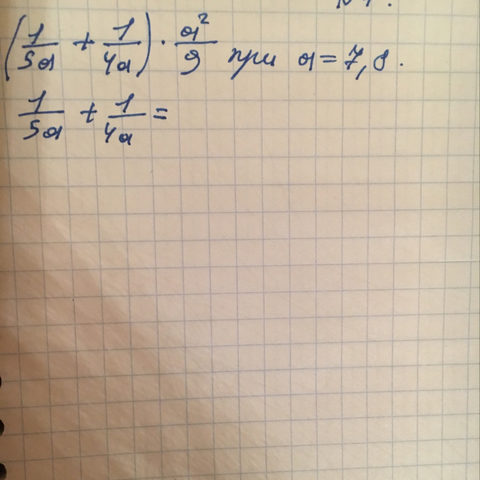 (1/5a + 1/4a) · a²/9 при a = 7,8.
1/5a + 1/4a =